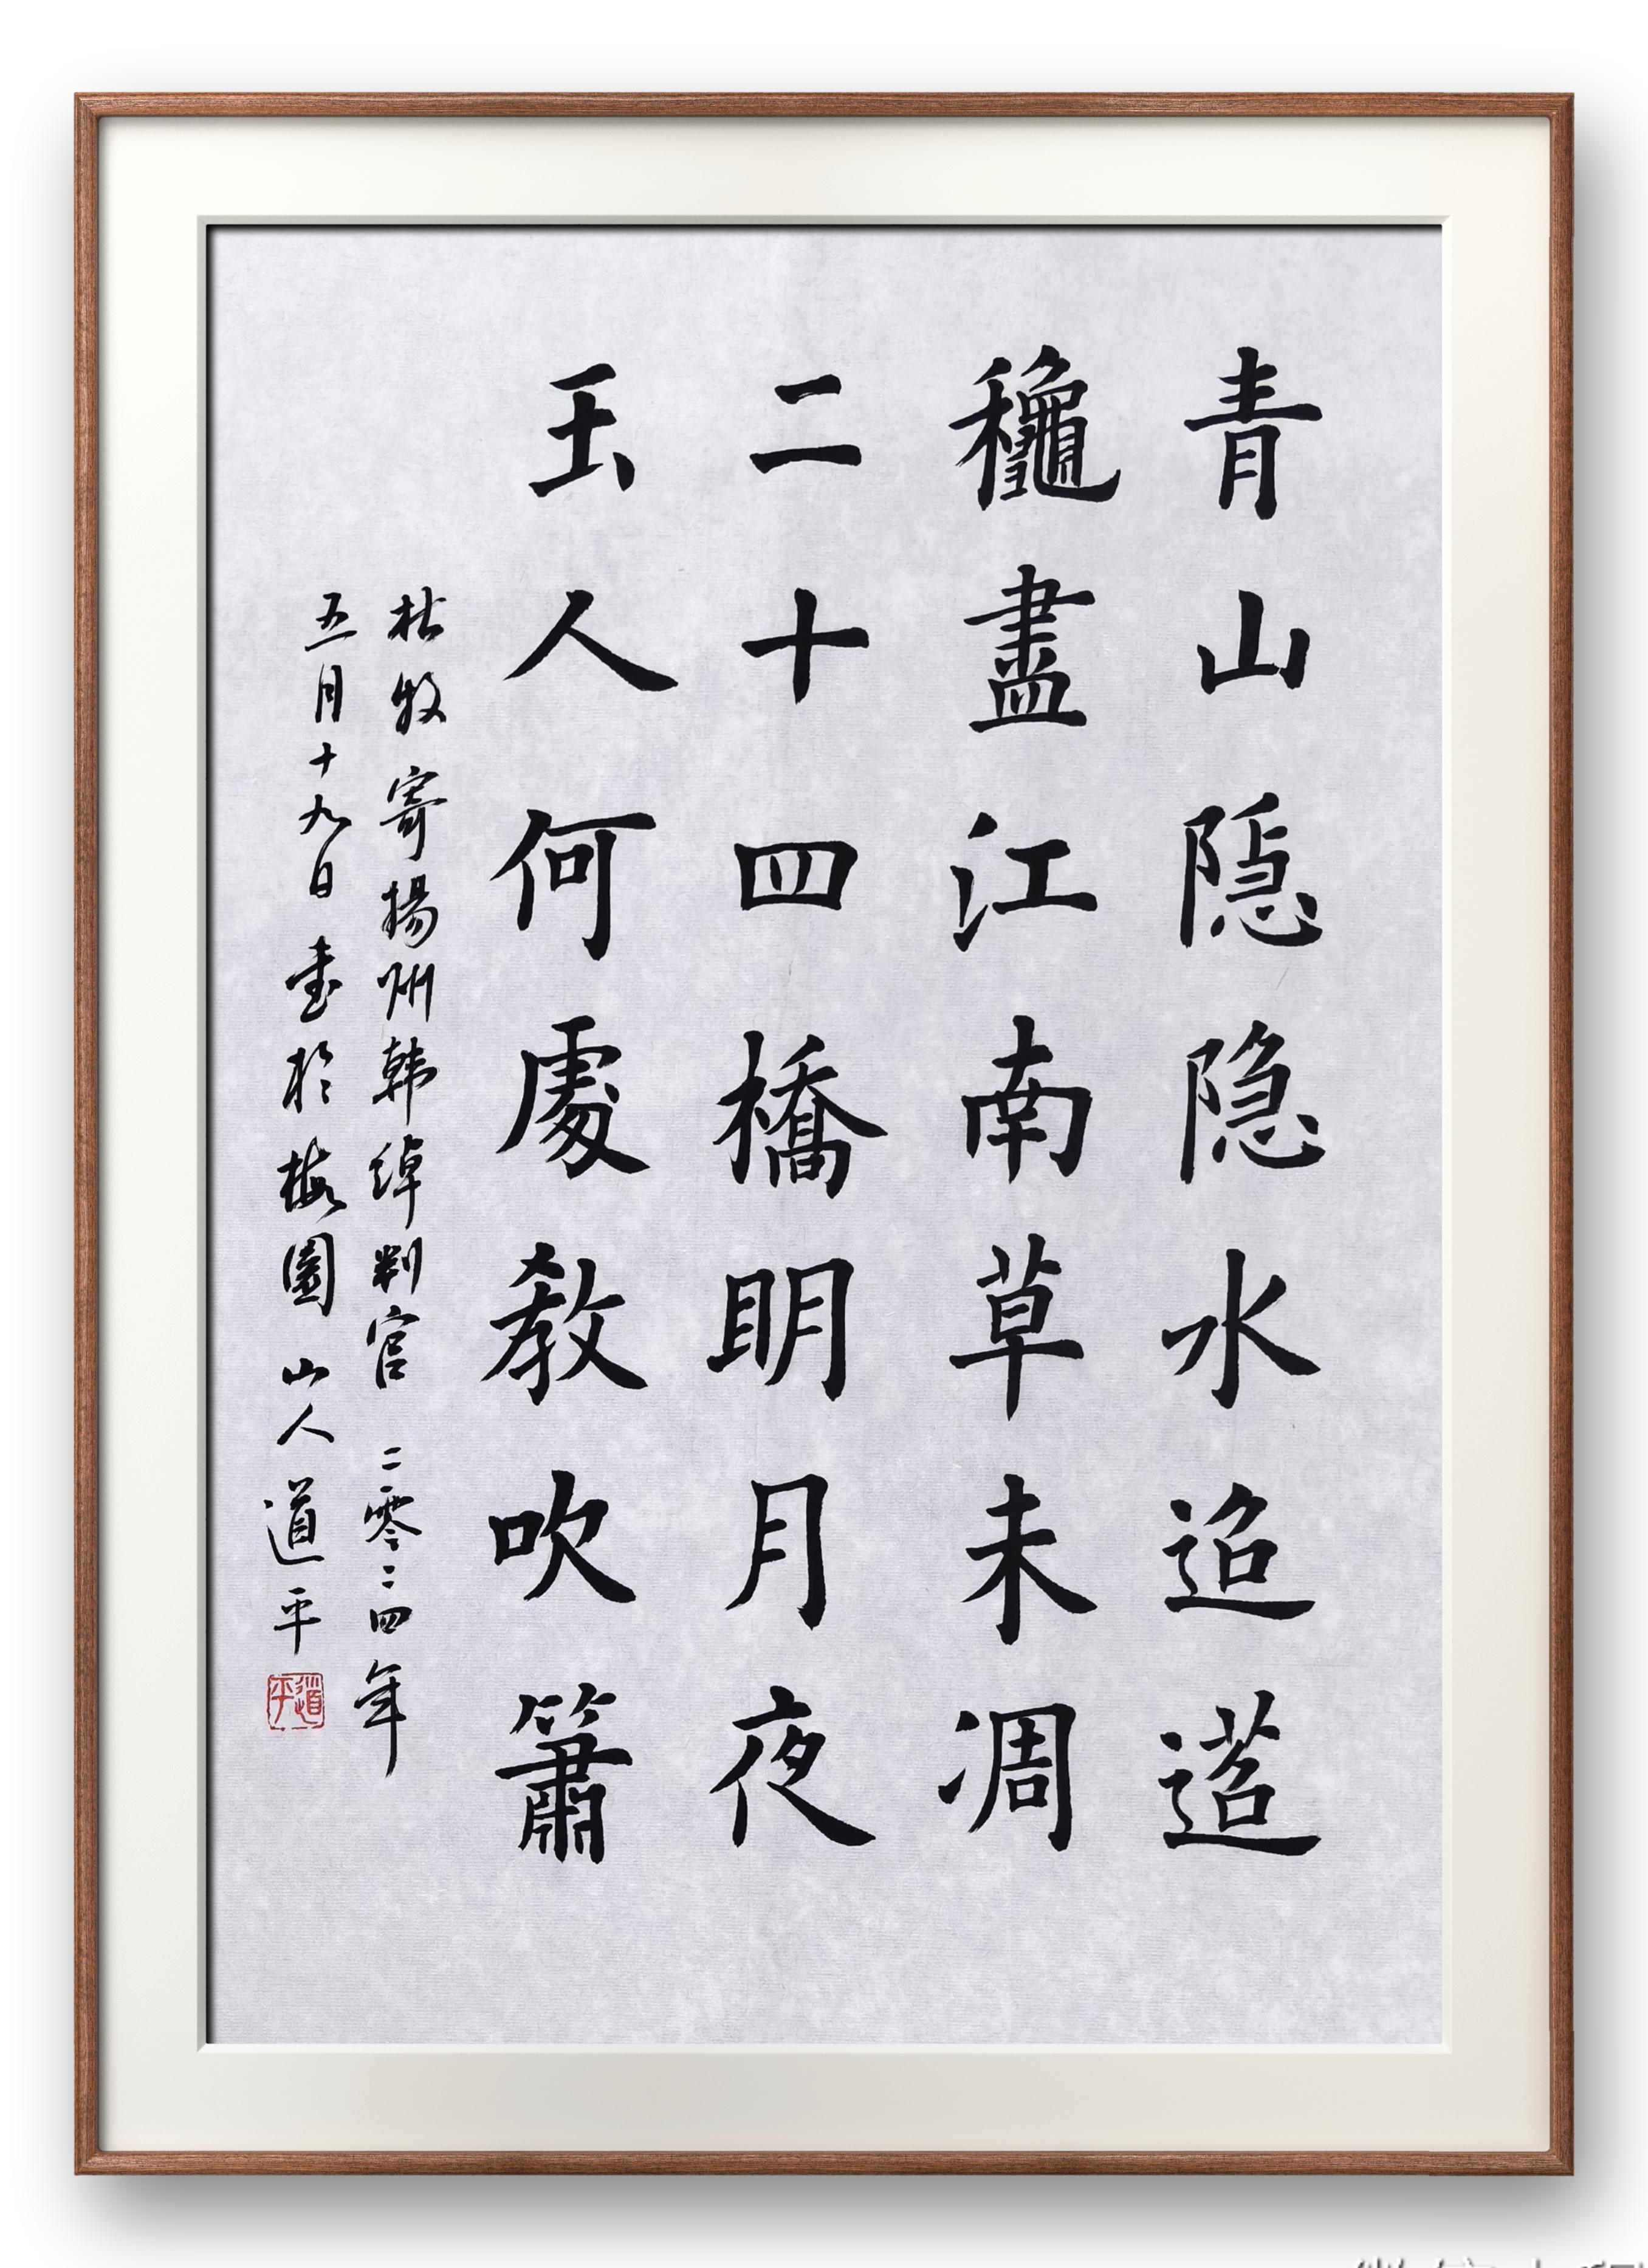 青山隐隐水迢遥
龝盡江南草未凋
二十四橋明月夜
玉人何處教吹簫
杜牧寄揚州韩绰判官 二零二四年
五月十九日書於梅園山人道平
道平